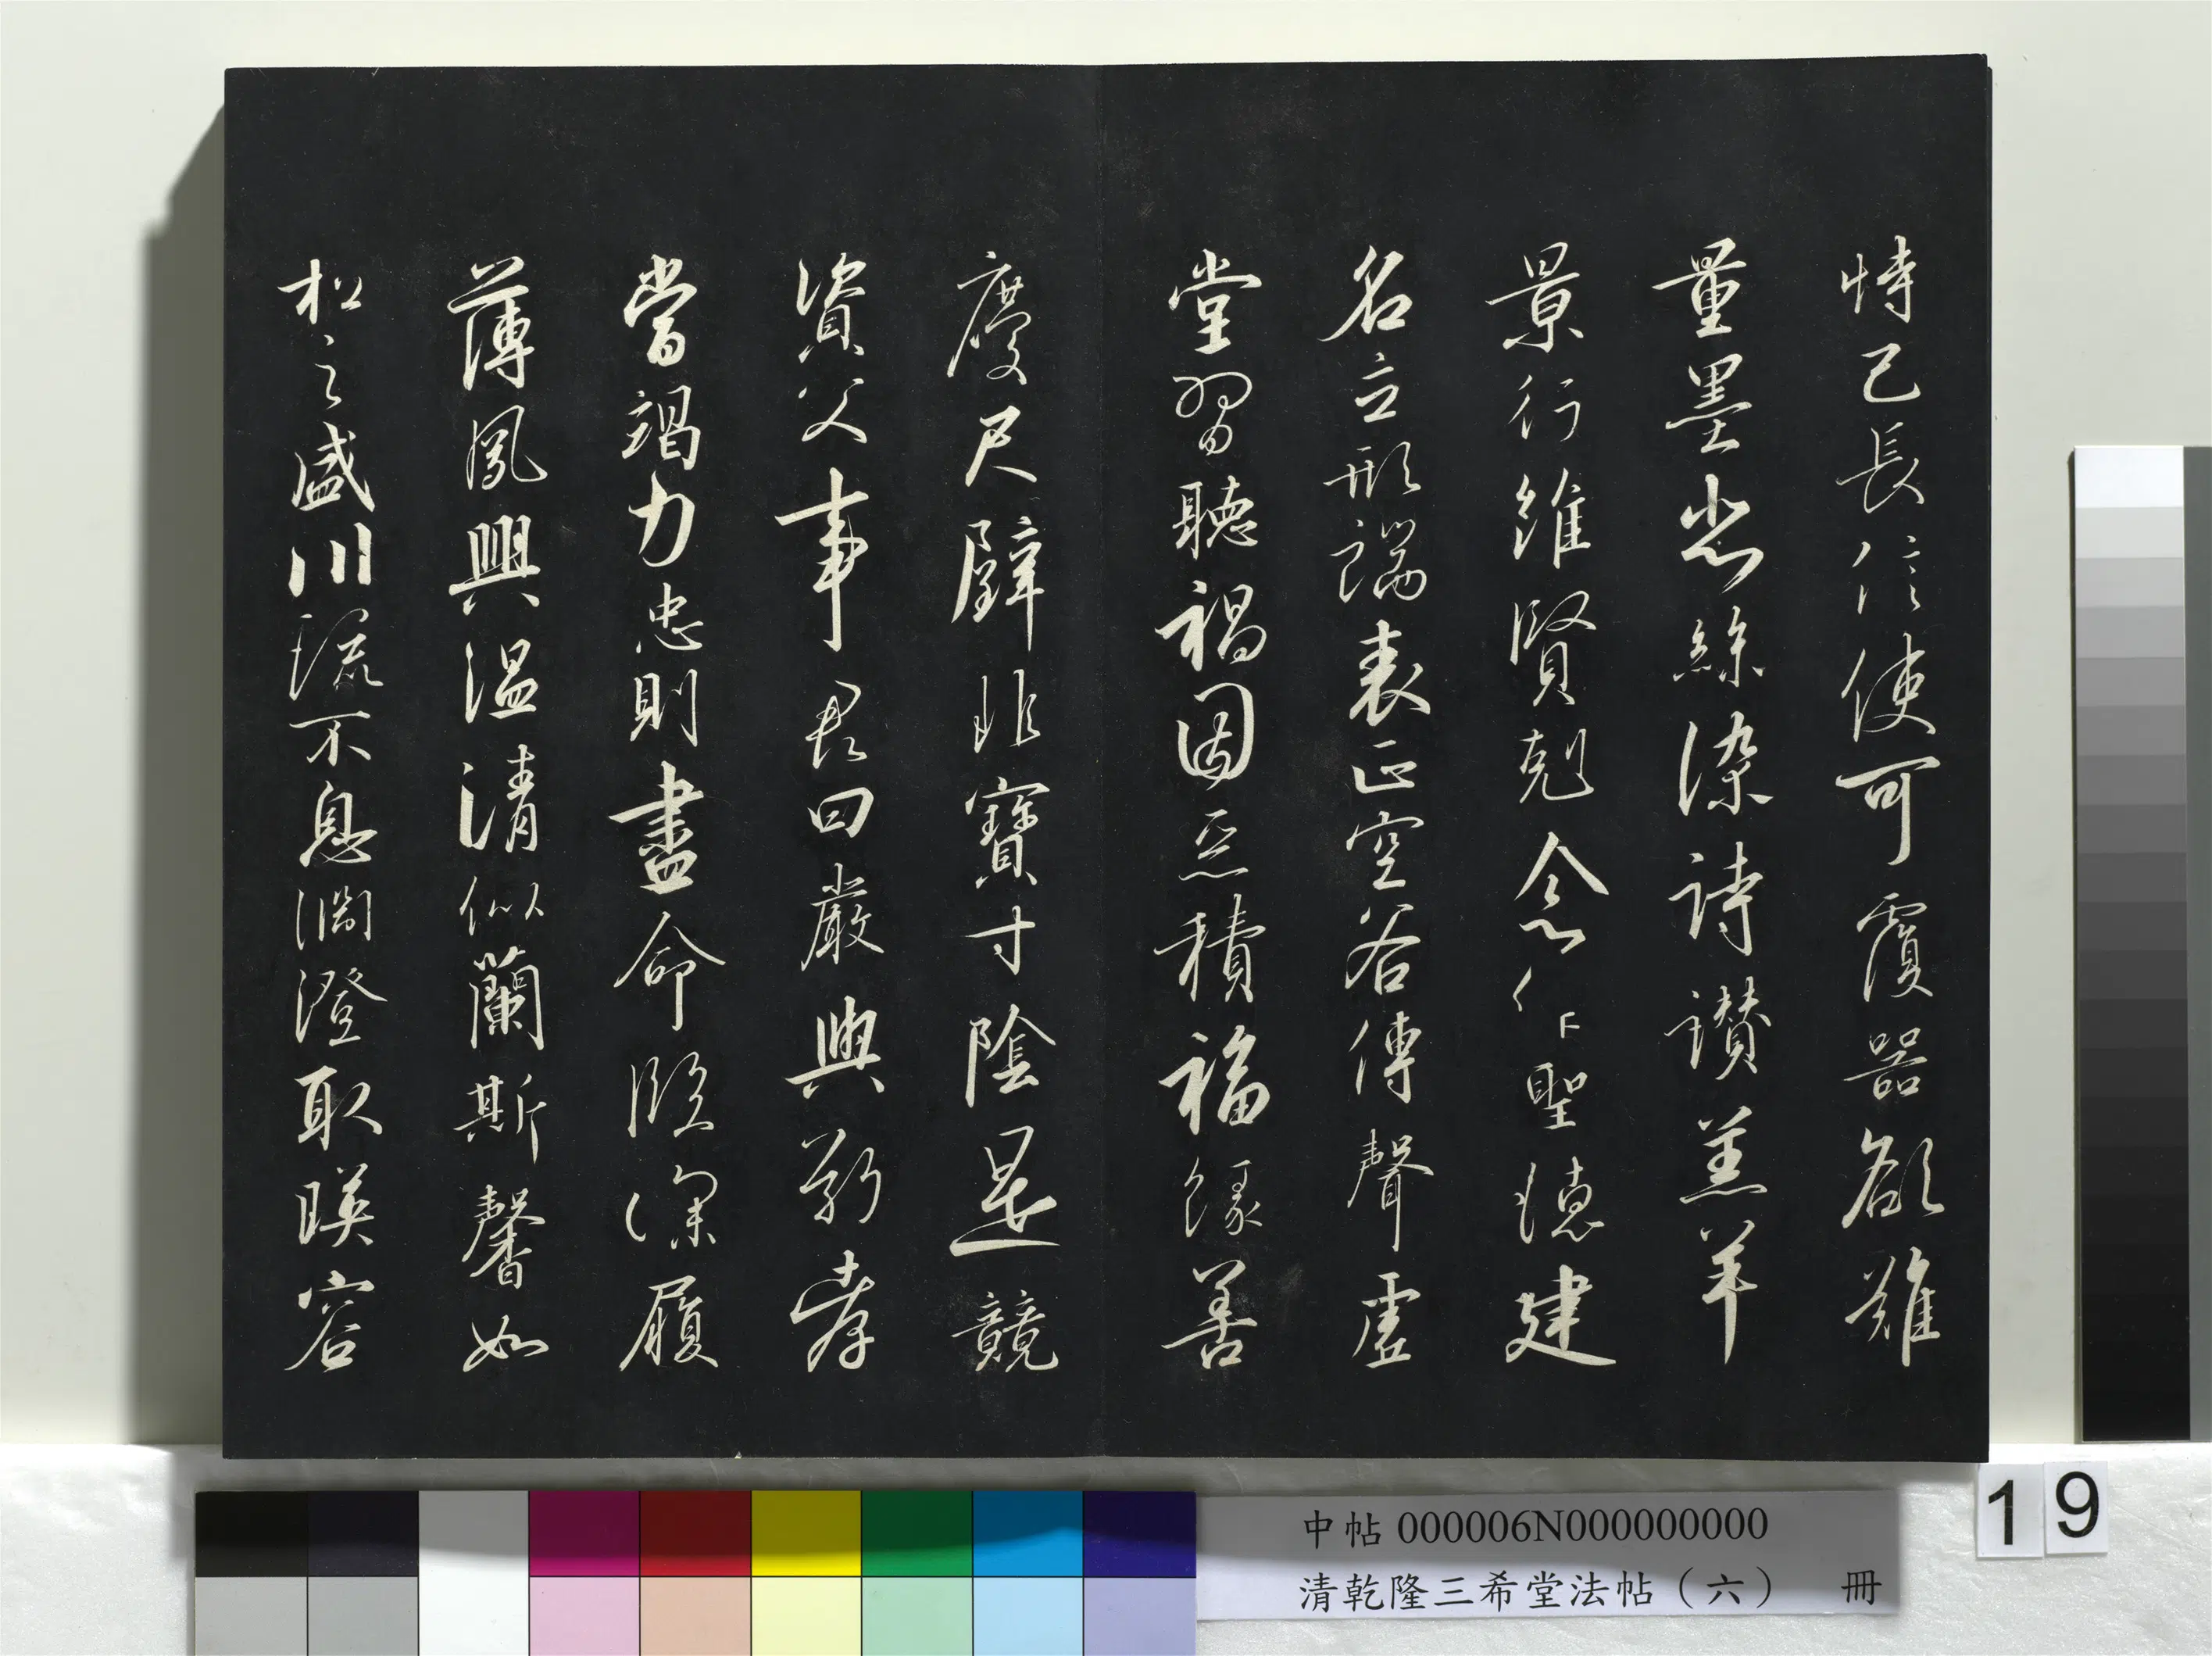 恃己長信使可覆器欲難
量墨悲絲染詩讚羔羊
景行維賢剋念作聖德建
名立形端表正空谷傳聲虛
堂習聽禍因惡積福緣善
慶尺璧非寶寸陰是競
資父事君曰嚴與敬孝
當竭力忠則盡命臨深履
薄夙興溫清似蘭斯馨如
松之盛川流不息淵澄取暎容
中帖 000006N000000000
清乾隆三希堂法帖（六） 冊
19